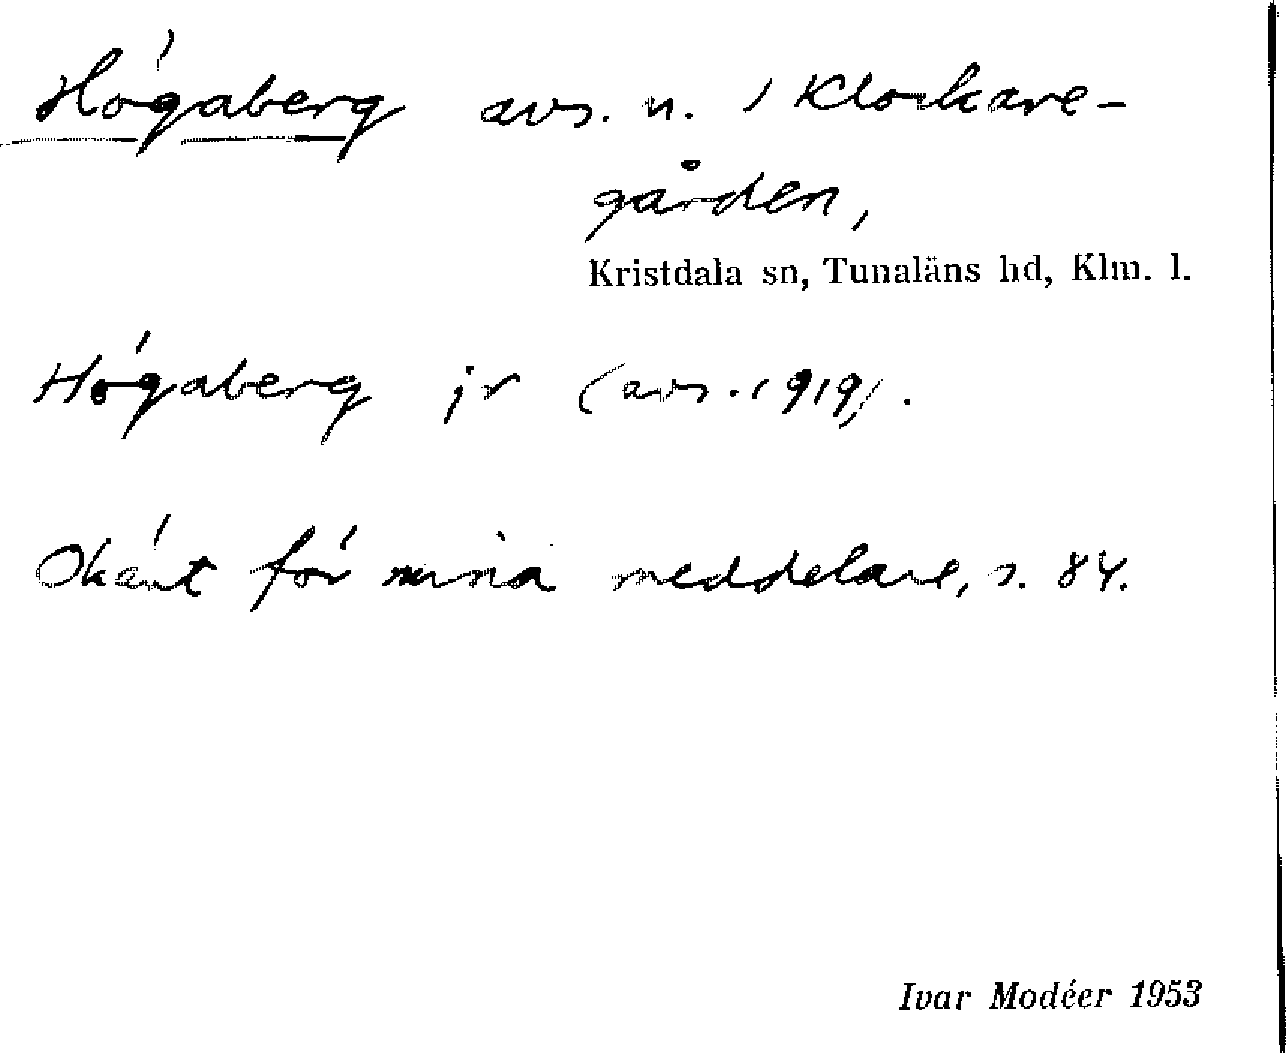 Högaberg avs. n. i Klockare-
gården,
Kristdala sn, Tunaläns hd, Klm. l.
Högaberg jr (avs. 1919).
Okänt för mina meddelare, s. 84.
Ivar Modéer 1953